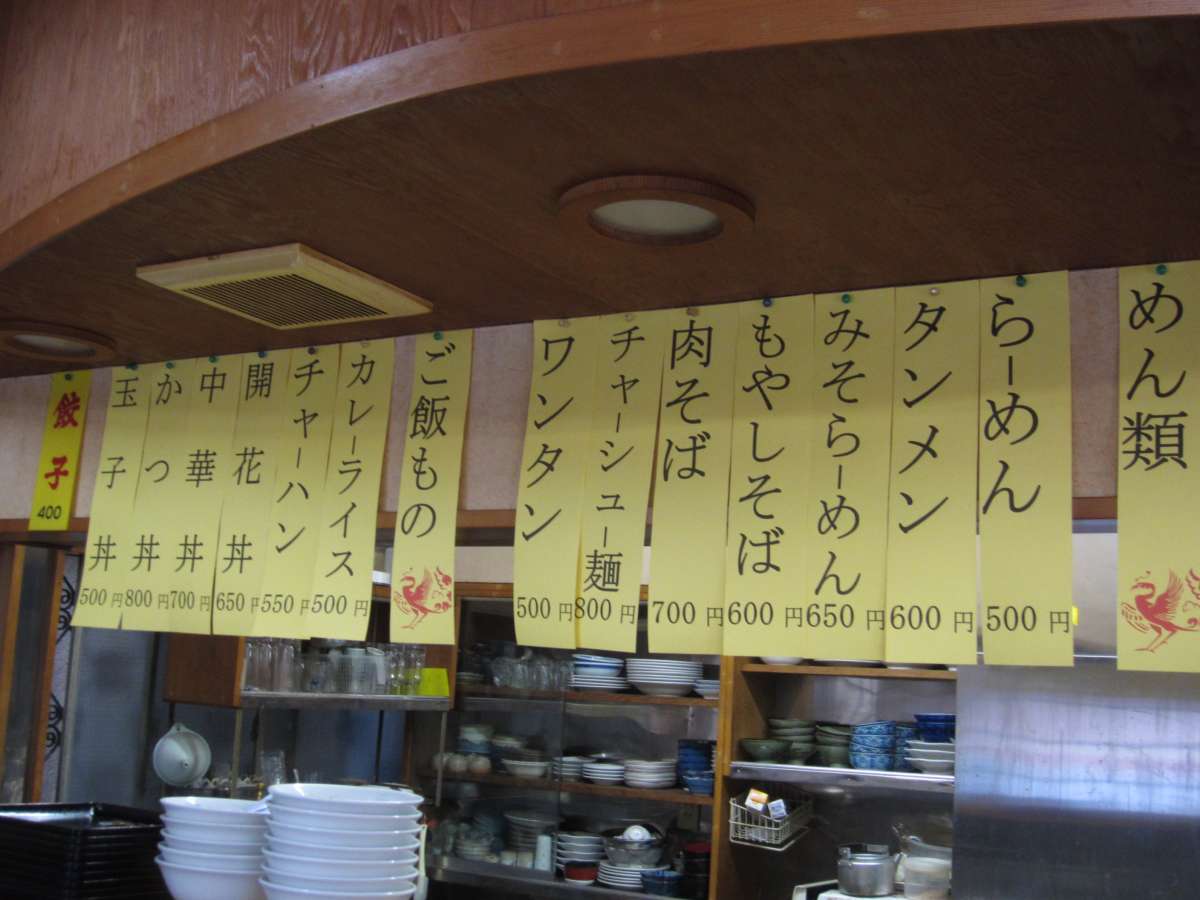 めん類
らーめん
500円
タンメン
600円
みそらーめん
650円
もやしそば
600円
肉そば
700円
チャーシュー麺
800円
ワンタン
500円
ご飯もの
カレーライス
500円
チャーハン
550円
開花丼
650円
中華丼
700円
かつ丼
800円
玉子丼
500円
餃子
400